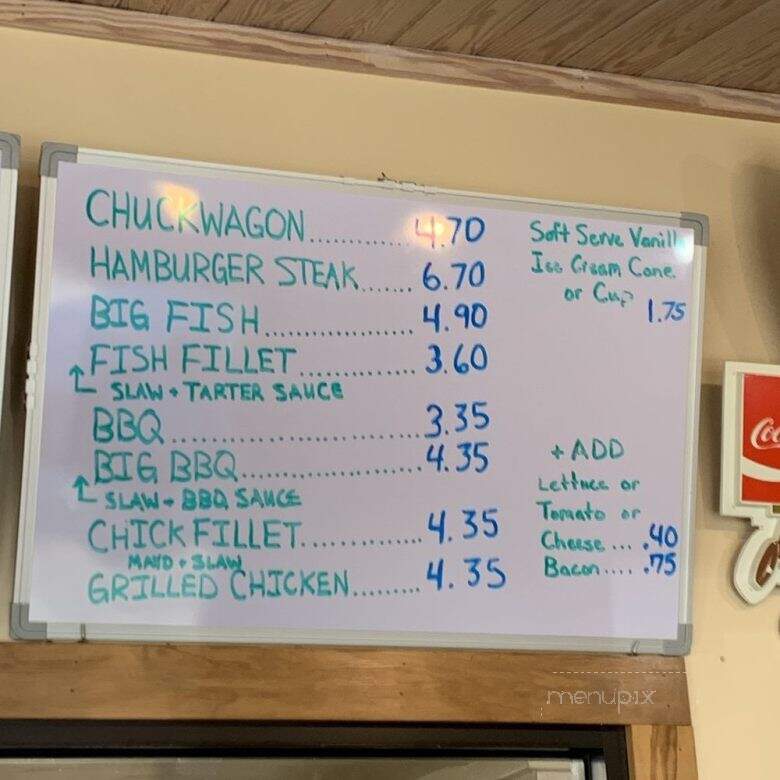 CHUCKWAGON............ 4.70
HAMBURGER STEAK....... 6.70
BIG FISH.................. 4.90
FISH FILLET.............. 3.60
SLAW + TARTER SAUCE
BBQ........................ 3.35
BIG BBQ.................. 4.35
SLAW + BBQ SAUCE
CHICK FILLET............. 4.35
MAYO + SLAW
GRILLED CHICKEN......... 4.35
Soft Serve Vanill
Ice Cream Cone
or Cup
1.75
+ ADD
Lettuce or
Tomato or
Cheese ... .40
Bacon .... .75
menupix